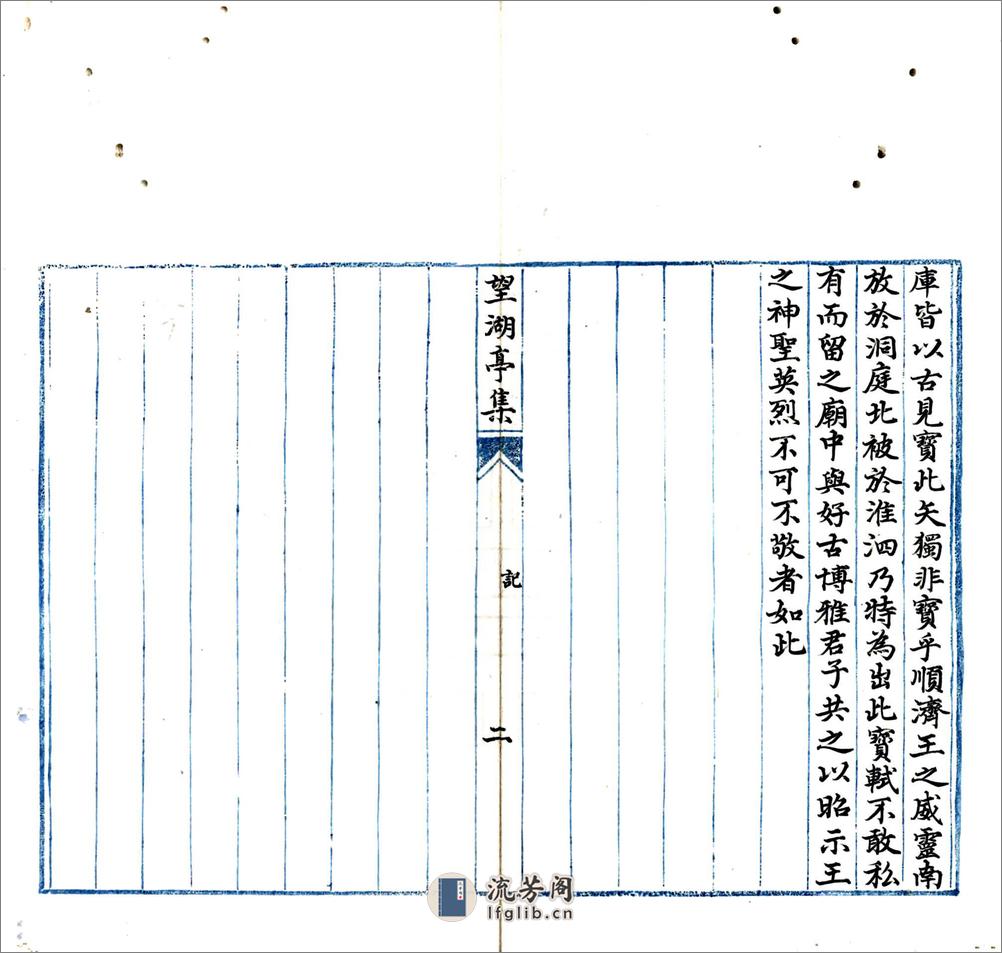 庫皆以古見寳此矢獨非寳乎順濟王之威靈南
放於洞庭北被於淮泗乃特為出此寳軾不敢私
有而留之廟中與好古博雅君子共之以昭示王
之神聖英烈不可不敬者如此
望湖亭集
記
二
流芳阁
lfglib.cn